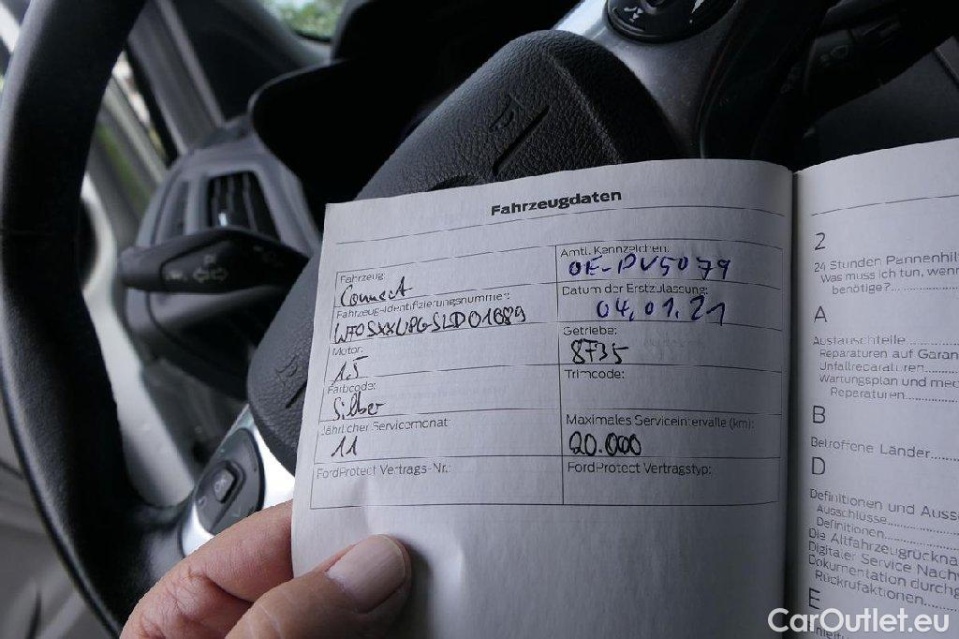 Fahrzeugdaten
Fahrzeug:
Connect
Amtl. Kennzeichen:
OE-PV5079
Fahrzeug-Identifizierungsnummer:
Datum der Erstzulassung:
04.01.21
Motor:
1.5
Getriebe:
8F35
Farbcode:
Silber
Trimcode:
Jährlicher Servicemonat:
11
Maximales Serviceintervalle (km):
20.000
FordProtect Vertrags-Nr.:
FordProtect Vertragstyp:
2
24 Stunden Pannenhil
Was muss ich tun, wenn
benötige?
A
Austauschteile
Reparaturen auf Garan
Unfallreparaturen
Wartungsplan und mec
Reparaturen
B
Betroffene Länder
D
Definitionen und Aussc
Ausschlüsse
Definitionen
Die Altfahrzeugrückna
Digitaler Service Nachw
Dokumentation durchg
Rückrufaktionen
E
CarOutlet.eu